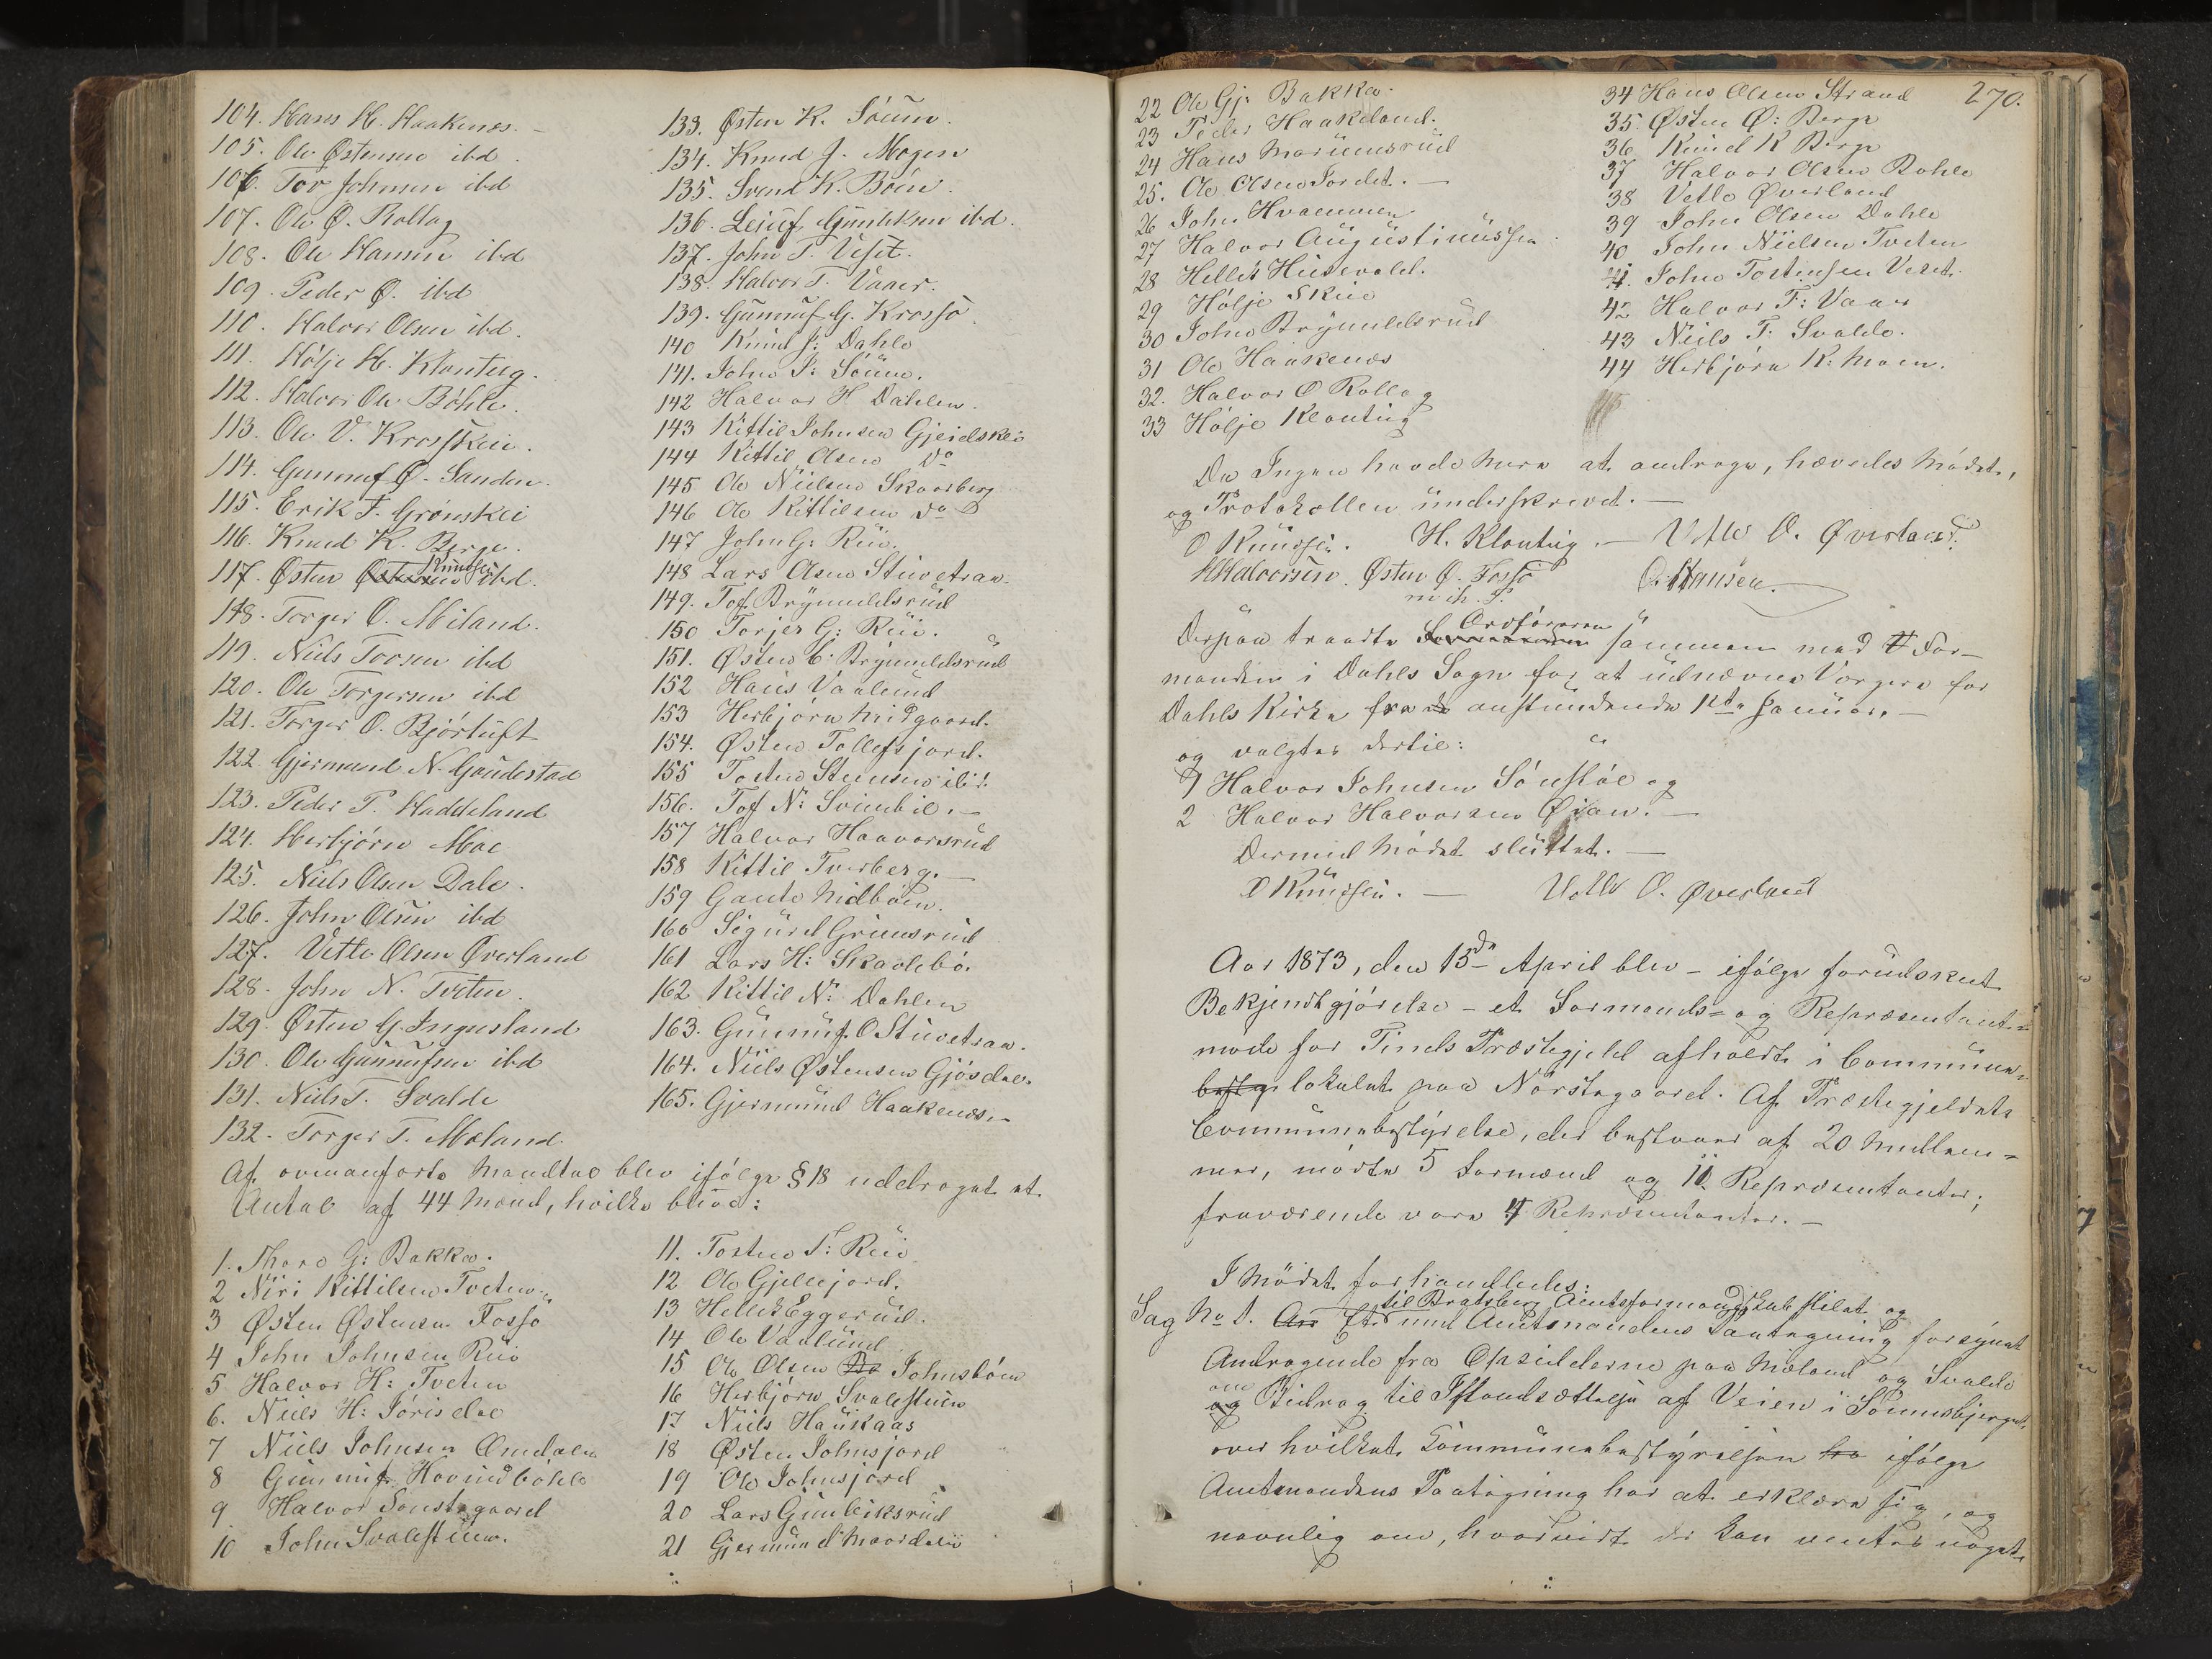 104. Hans H. Haakenæs. –
105. Ole Østensen ibd.
106. Tov Johnsen ibd
107. Ole Ø. Rollag
108. Ole Hansen ibd
109. Peder Ø. ibd
110. Halvor Olsen ibd.
111. Hølje H. Klonteig.
112. Halvor Ols Bøhle.
113. Ole V. Krosskei.
114. Gunnuf Ø. Sanden.
115. Erik F. Grønskei
116. Knud K. Berge.
117. Østen Knudsen ibd.
118. Torger O. Miland.
119. Niels Torsen ibd
120. Ole Torgersen ibd
121. Torger O. Bjørtuft
122. Gjermund N. Gaudestad
123. Peder P. Haddeland
124. Herbjørn Moe
125. Niels Olsen Dale.
126. John Olsen ibd
127. Vetle Olsen Øverland
128. John N. Tveten.
129. Østen G. Ingusland
130. Ole Gunnufsen ibd
131. Niels T. Svalde
132. Torger T. Mæland.
133. Østen K. Søum.
134. Knud J. Mogen
135. Svend K. Bøen.
136. Leiuf Gunleksen ibd.
137. John T. Veset.
138. Halvor T. Vaaer.
139. Gunnuf G. Krossø
140 Knud J: Dahle
141. John P: Søum.
142 Halvor H Dahlen.
143 Kittil Johnsen Gjeidskei
144 Kittil Olsen Do
145 Ole Nielsen Skaarberg
146 Ole Kittilsen Do
147 John G: Rui.
148 Lars Olsen Stuvetraa.
149. Tof Brynieldsrud
150 Torjer G: Rui.
151. Østen C: Brynieldsrud
152 Hans Vaalund
153 Herbjørn Midgaard.
154. Østen Tollefsjord.
155 Tosten Steensen ibid.
156. Tof N: Svinbil. –
157 Halvor Haavarsrud
158 Kittil Tverberg. –
159 Gaute Midbøen.
160 Sigurd Grimsrud
161 Lars H: Skaalebø.
162 Kittil N: Dahlen
163. Gunnuf O Stuvetraa.
164. Niels Østensen Gjøsdal.
165. Gjermund Haakenæs. –
Af ovenanførte Mandtal blev ifølge § 18 uddraget et
Antal af 44 Mænd, hvilke bleve:
1. Thoro G: Bakka.
2 Niri Kittilsen Tveten.
3 Østen Østensen Fossø
4 John Johnsen Rui
5 Halvor H: Tveten
6. Niels H: Jørisdal
7 Niels Johnsen Omdalen
8 Gunnuf Hovindbøhle
9 Halvor Sønstegaard
10 John Svalestuen.
11. Tosten T: Rui
12 Ole Gjellejord.
13 Hellek Eggerud.
14 Ole Vaalund
15 Ole Olsen Do Johnsbøen
16 Herbjørn Svalestuen
17 Niels Haukaas
18 Østen Johnsjord
19 Ole Johnsjord
20 Lars Gunleiksrud
21 Gjermund Maardalen
270.
22 Ole Gj. Bakka.
23 Peder Haakeland.
24 Hans Mariemsrud
25. Ole Olsen Jordet. –
26 John Hvammen
27 Halvor Augustinussen
28 Hellek Husevold.
29 Hølje Skeie
30 John Brynieldsrud
31 Ole Haakenæs
32. Halvor O Rollag
33 Hølje Klonteig
34 Hans Olsen Strand
35. Østen Ø: Berge
36 Knud K Berge
37 Halvor Olsen Bøhle
38 Vetle Øverland
39 John Olsen Dahle
40 John Nielsen Tveten
41. John Tostensen Veset.
42 Halvor T: Vaaer
43 Niels T. Svalde.
44 Herbjørn K: Moen.
Da Ingen havde mere at andrage, hævedes Mødet,
og Protokollen underskrevet. –
O Knudsen. H. Klonteig. – Vetle O. Øverland.
H Halvorsen. Østen Ø. Fossø O. Hansen.
m ih. P.
Derpaa traadte Ordføreren sammen med For-
manden i Dahls Sogn for at udnævne Værgere for
Dahls Kirke fra de anstundende 1ste Januar. –
og valgtes dertil:
1 Halvor Johnsen Sønstøl og
2 Halvor Halvorsen Øian. –
Dermed Mødet sluttet. –
O Knudsen. – Vetle O. Øverland
Aar 1873, den 15de April blev – ifølge forudskeet
Bekjendtgjørelse – et Formands- og Repræsentant-
møde for Tinds Præstegjeld afholdt i Commune-
lokalet paa Nørstegaard. Af Præstegjeldets
Communebestyrelse, der bestaaer af 20 Medlem-
mer, mødte 5 Formænd og 11 Repræsentanter;
fraværende vare 4 Repræsentanter. –
I Mødet forhandledes:
Sag No 1. Et til Bratsberg Amtsformandskab stilet og
med Amtmandens Paategning forsynet
Andragende fra Opsidderne paa Mæland og Svalde
om Bidrag til Istandsættelse af Veien i Sønnebjerget,
over hvilket Kommunebestyrelsen ifølge
Amtmandens Paategning har at erklære sig, og
navnlig om, hvorvidt der kan ventes noget